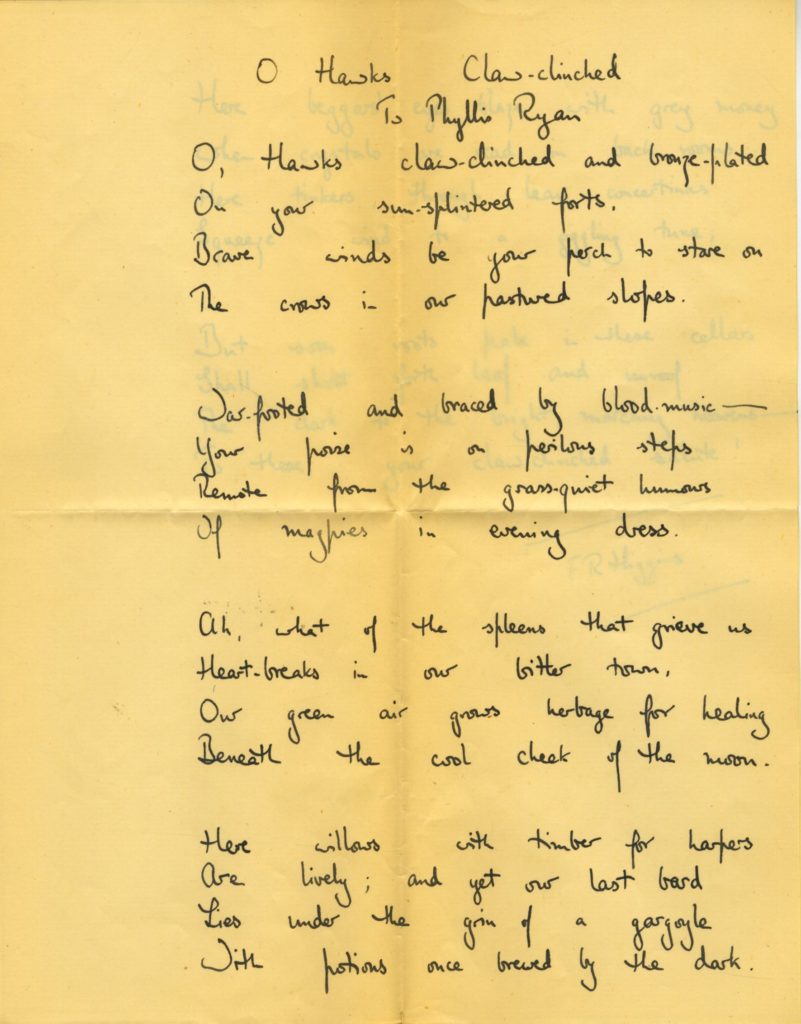 O Hawks Claw-clinched
To Phyllis Ryan
O, Hawks claw-clinched and bronze-plated
On your sun-splintered forts,
Brave winds be your perch to stare on
The crows in our pastured slopes.
War-footed and braced by blood-music—
Your poise is on perilous steps
Remote from the grass-quiet humours
Of magpies in evening dress.
Ah, what of the spleens that grieve us
Heart-breaks in our bitter town,
Our green air grows herbage for healing
Beneath the cool cheek of the moon.
Here willows with timber for harpers
Are lively; and yet our last bard
Lies under the grin of a gargoyle
With potions once brewed by the dark.